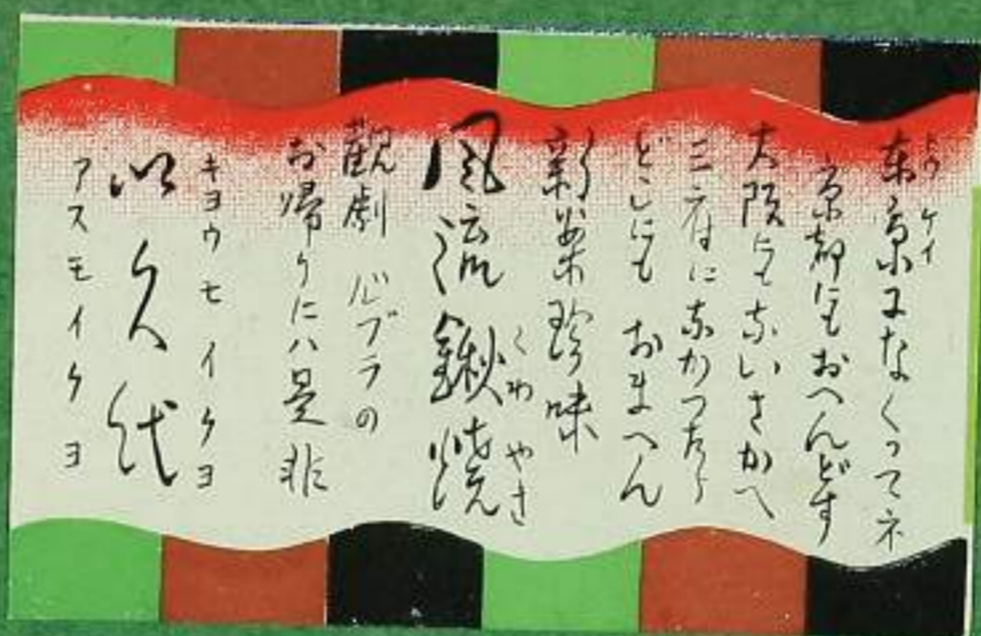 東京になくつてネ
トウケイ
京都にもおへんどす
大阪にも あいさかへ
三府に あかつたら
どこにも おまへん
新案珍味
風流鍬焼
くわやき
観劇 心ブラの
お帰りにハ是非
キヨウモ イクヨ
以久代
アスモイクヨ